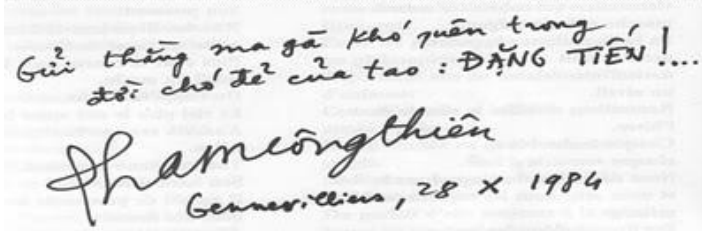 Gửi thằng ma gà khó quên trong
đời chó đẻ của tao : ĐẶNG TIẾN !....
Phạmcôngthiện
Gennevilliers, 28 X 1984